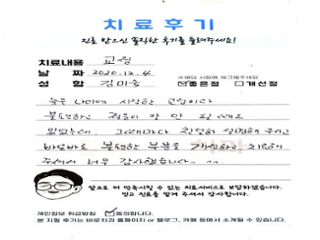 치료후기
진료 받으신 솔직한 후기를 들려주세요!
치료내용 교정
날 짜 2020.12.4
해당 사항에 체크해주세요
성 함 김미승 ☑좋은점 □개선점
늦은 나이에 시작한 교정이라
불편하고 적응이 잘 안 될 때도
있었는데, 그때마다 친절히 설명해 주시고
바로바로 불편한 부분을 개선하고 치료해
주셔서 너무 감사했습니다. ^^
앞으로 더 만족시킬 수 있는 의료서비스로 보답하겠습니다.
믿고 진료를 맡겨 주셔서 감사합니다.
개인정보 취급방침 ☑동의합니다.
본 치료 후기는 바로치과 홈페이지 or 블로그, 카페 등에서 소개될 수 있습니다.